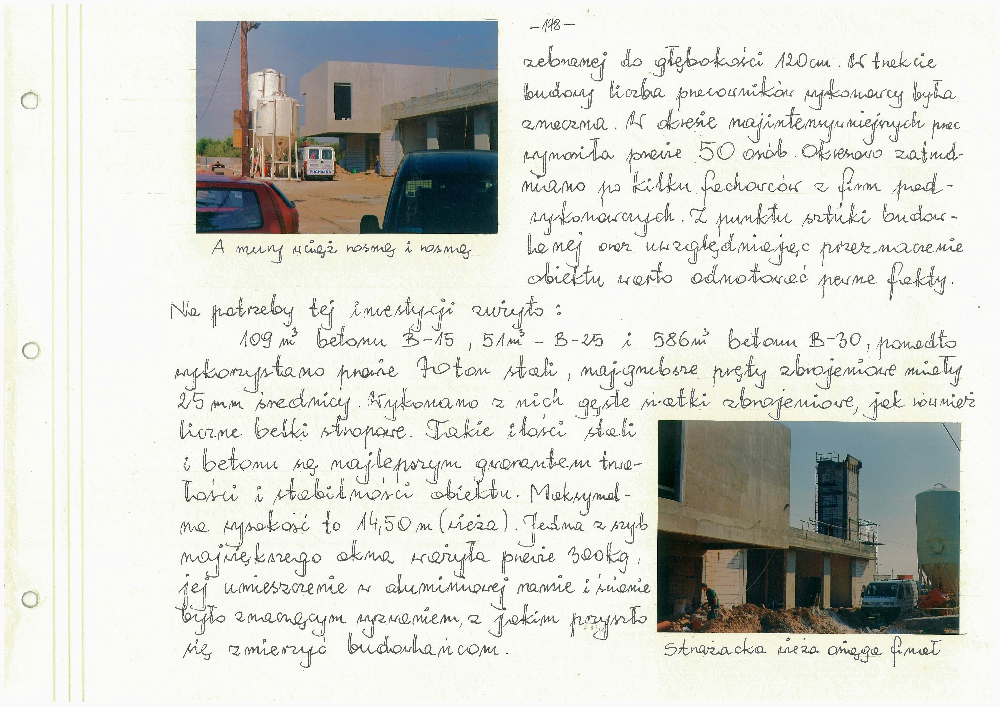 -178-
zebranej do głębokości 120cm. W trakcie
budowy liczba pracowników wykonawcy była
znaczna. W okresie najintensywniejszych prac
wynosiła prawie 50 osób. Okresowo zatrud-
niano po kilku fachowców z firm pod-
wykonawczych. Z punktu sztuki budow-
lanej oraz uwzględniając przeznaczenie
obiektu warto odnotować pewne fakty.
A mury wciąż rosną i rosną
Na potrzeby tej inwestycji zużyto:
109 m³ betonu B-15, 51m³ - B-25 i 586m³ betonu B-30, ponadto
wykorzystano prawie 70 ton stali, najgrubsze pręty zbrojeniowe miały
25 mm średnicy. Wykonano z nich gęste siatki zbrojeniowe, jak również
liczne belki stropowe. Takie ilości stali
i betonu są najlepszym gwarantem trwa-
łości i stabilności obiektu. Maksymal-
na wysokość to 14,50 m (wieża). Jedna z szyb
największego okna ważyła prawie 300kg,
jej umieszczenie w aluminiowej ramie i ścianie
było znaczącym wyzwaniem, z jakim przyszło
się zmierzyć budowlańcom.
Strażacka wieża osiąga finał